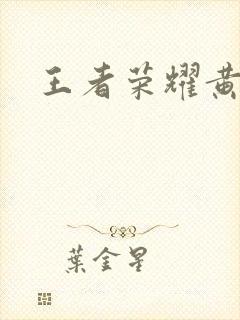 王者荣耀黄
葉金星